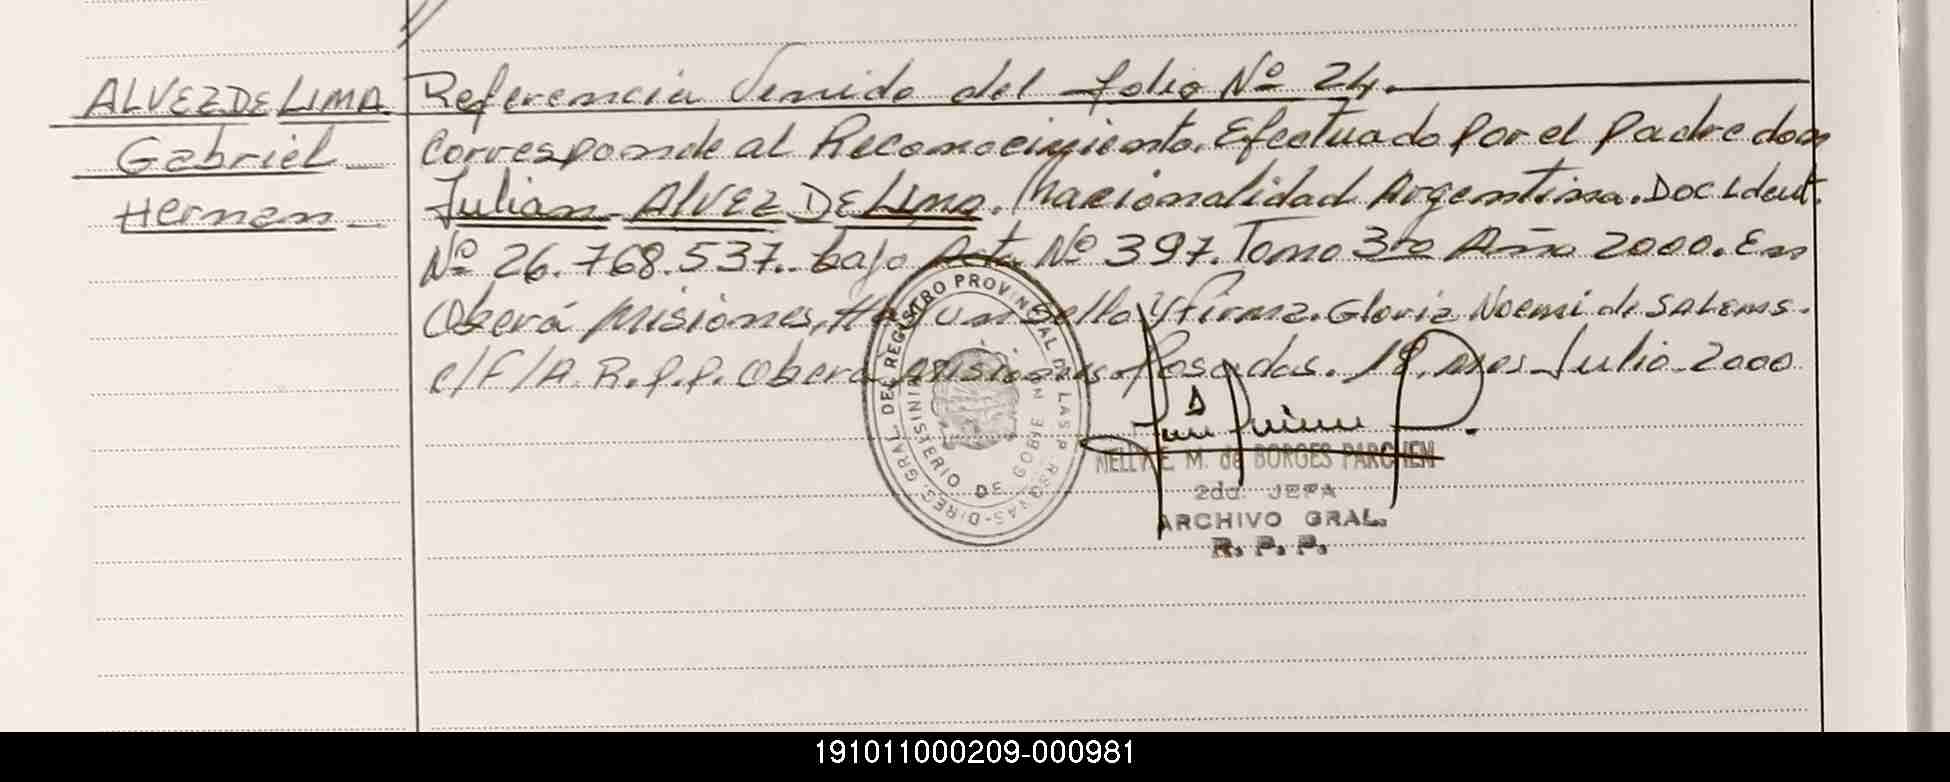 ALVEZ DE LIMA
Gabriel
Hernan
Referencia Venida del folio Nº 24.
Corresponde al Reconocimiento. Efectuado por el padre don
Julian ALVEZ DE LIMA. Nacionalidad Argentina. Doc Ident.
Nº 26.768.537.. bajo Acta Nº 397. Tomo 3ro Año 2000. En
Oberá Misiones, Hay un Sello y firma. Gloria Noemi de SALEMS.
e/F/A. R.P.P. Oberá Misiones. Posadas. 18. mes Julio-2000
DIREC. GRAL. DEL REGISTRO PROVINCIAL DE LAS PERSONAS
MINISTERIO DE GOBIERNO
NELLY E. M. de BORGES PARCHEN
2da. JEFA
ARCHIVO GRAL.
R. P. P.
191011000209-000981